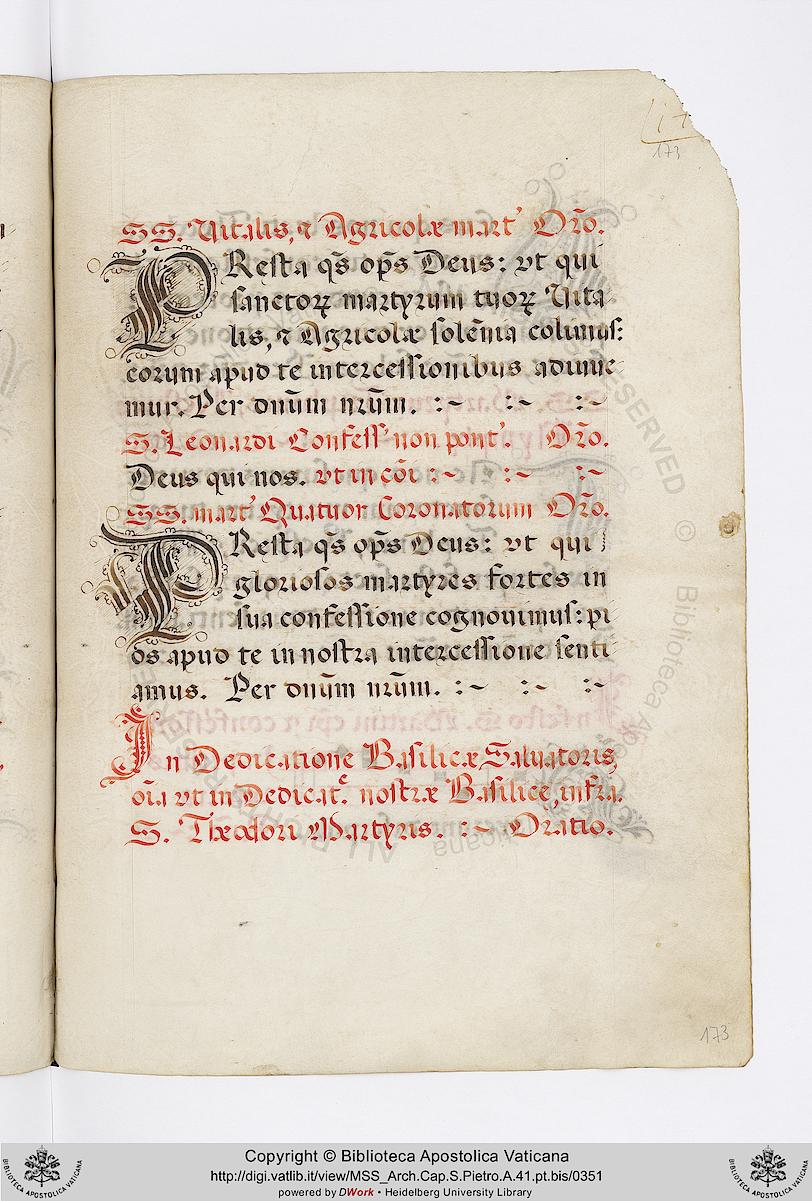 173
SS. Vitalis, ⁊ Agricolæ mart' Or̃o.
PResta q̃s op̃s Deus: vt qui
sanctoꝝ martyrum tuoꝝ Vita
lis, ⁊ Agricolæ solẽnia colimus:
eorum apud te intercessionibus adiuue
mur. Per dnũm nrũm. :~ :~ :~
S. Leonardi Confess' non pont'. Or̃o.
Deus qui nos. vt in cõi :~ :~ :~
SS. mart' Quatuor Coronatorum Or̃o.
PResta q̃s op̃s Deus: vt qui
gloriosos martyres fortes in
sua confessione cognouimus: pi
os apud te in nostra intercessione senti
amus. Per dnũm nrũm. :~ :~ :~
In Dedicatione Basilicæ Saluatoris,
oĩa vt in Dedicat.e nostræ Basilice, infra.
S. Theodori Martyris. :~ Oratio.
173
Copyright © Biblioteca Apostolica Vaticana
http://digi.vatlib.it/view/MSS_Arch.Cap.S.Pietro.A.41.pt.bis/0351
powered by DWork • Heidelberg University Library